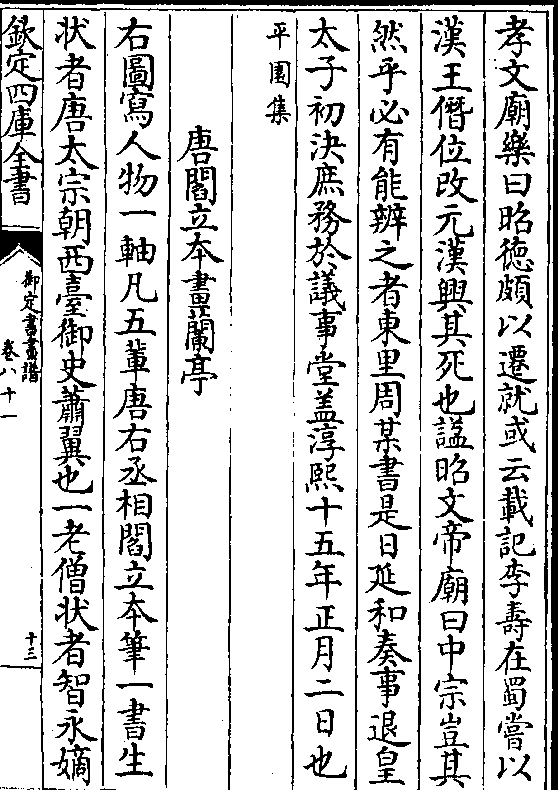 孝文廟樂曰昭徳頗以遷就或云載記李壽在蜀嘗以
漢王僭位改元漢興其死也諡昭文帝廟曰中宗豈其
然乎必有能辨之者東里周某書是日延和奏事退皇
太子初決庶務於議事堂盖淳熙十五年正月二日也
平園集
唐閻立本畫蘭亭
右圖寫人物一軸凡五軰唐右丞相閻立本筆一書生
状者唐太宗朝西臺御史蕭翼也一老僧状者智永嫡
欽定四庫全書
御定書畫譜
卷八十一
十三